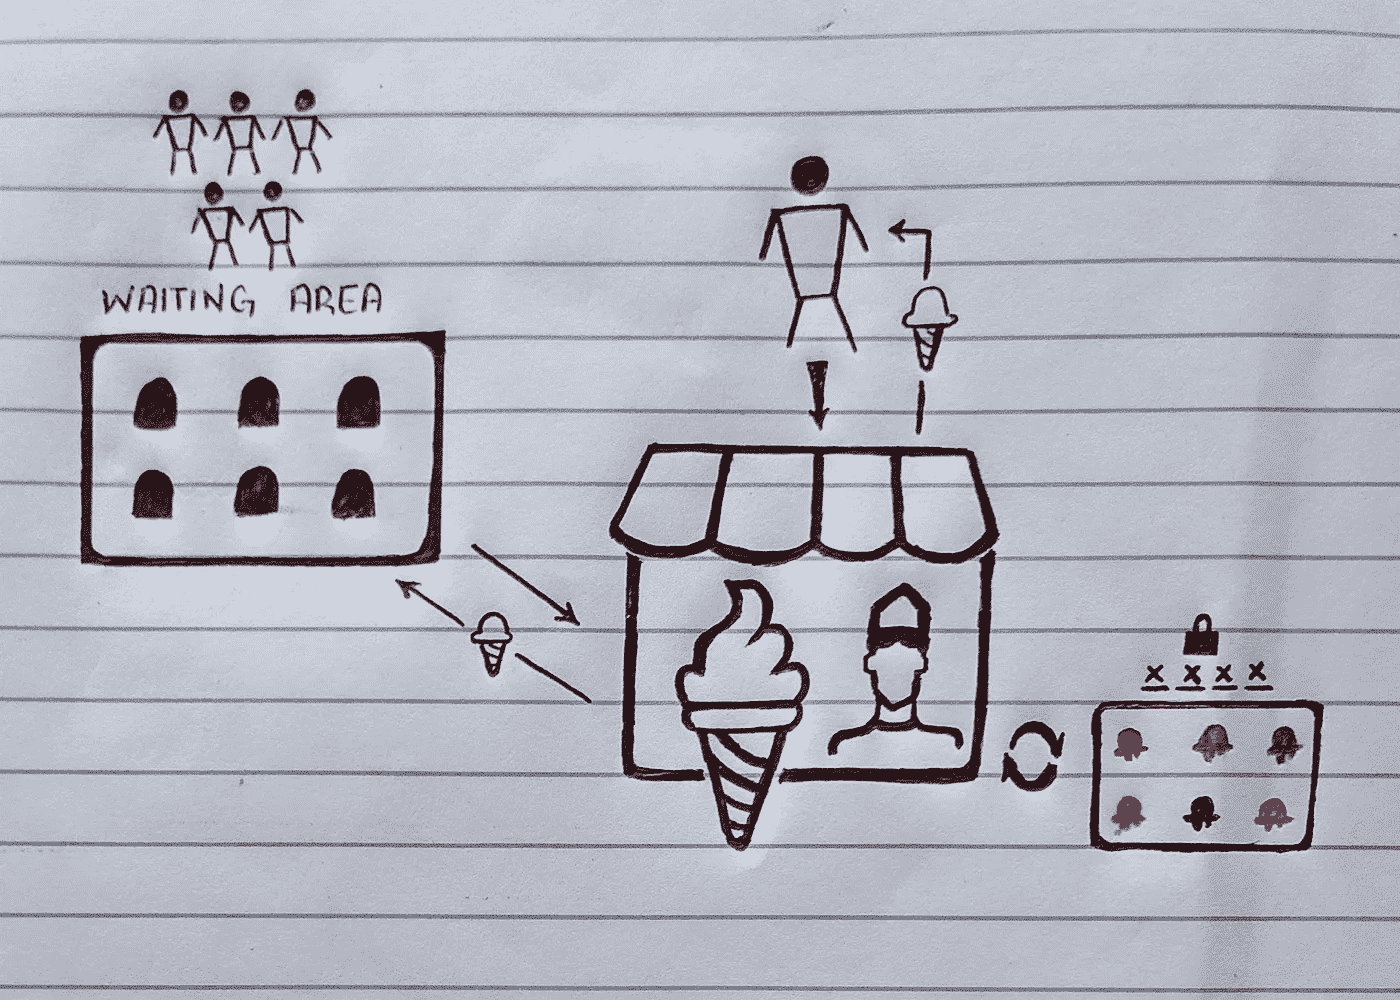 WAITING AREA
x x x x